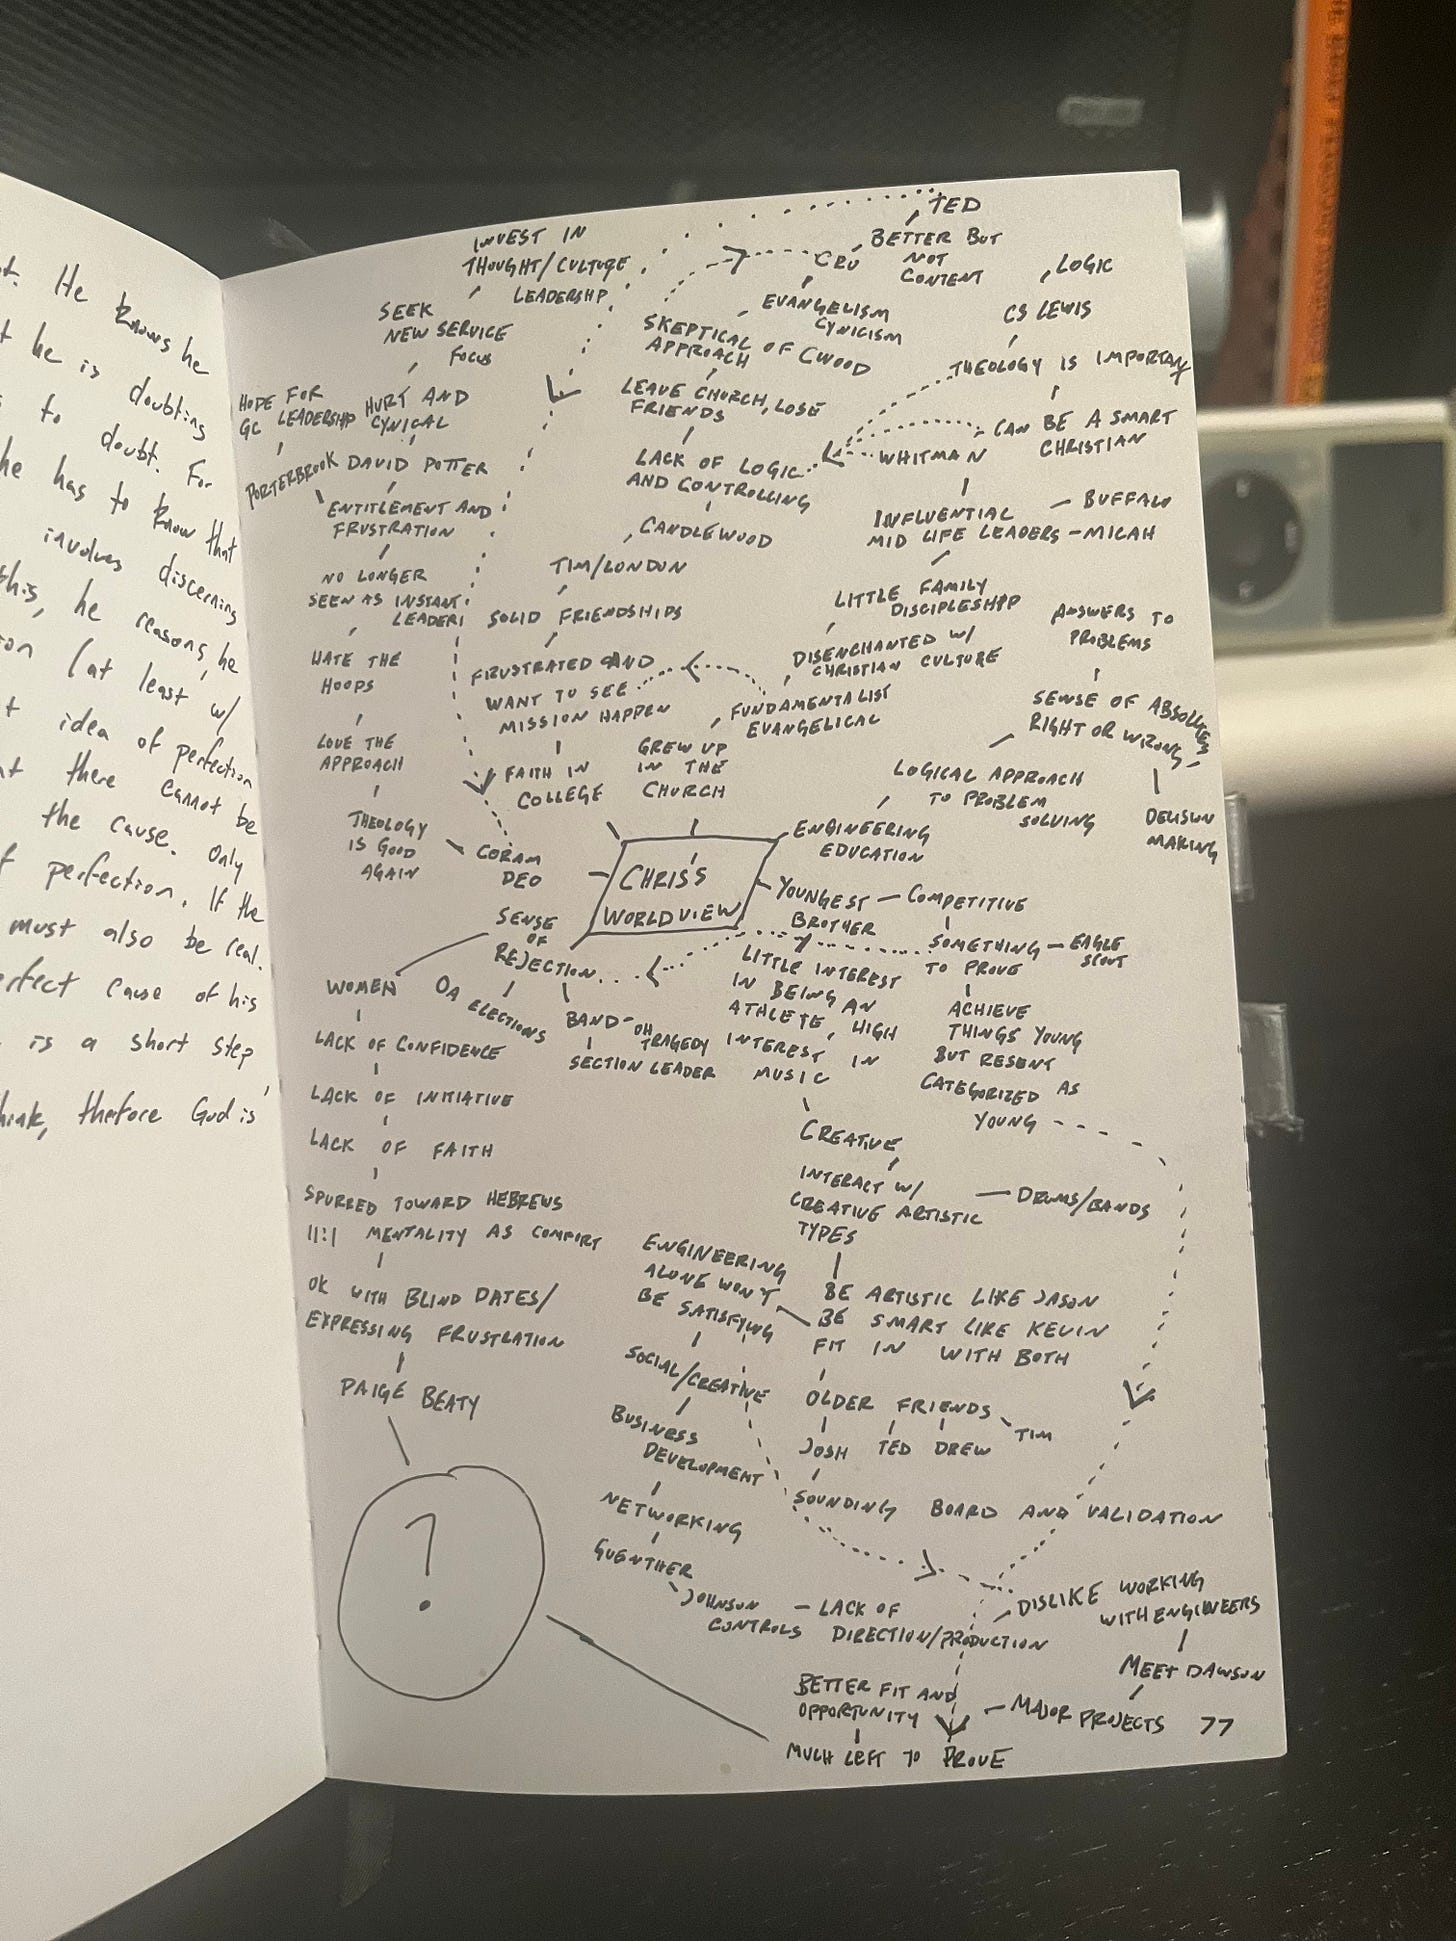 t. He knows he
t he is doubting
to doubt. For
he has to know that
involves discerning
this, he reasons, he
(at least w/
idea of perfection
there cannot be
the cause. Only
f perfection. If the
must also be real.
cause of his
is a short step
think, thefore God is
TED
BETTER BUT
NOT
CONTENT
CRU
EVANGELISM
CYNICISM
SKEPTICAL OF CWOOD
APPROACH
LEAVE CHURCH, LOSE
FRIENDS
LACK OF LOGIC
AND CONTROLLING
CANDLEWOOD
TIM/LONDON
SOLID FRIENDSHIPS
FRUSTRATED AND
WANT TO SEE
MISSION HAPPEN
FAITH IN
COLLEGE
INVEST IN
THOUGHT/CULTURE
LEADERSHP
SEEK
NEW SERVICE
FOCUS
HURT AND
CYNICAL
DAVID POTTER
HOPE FOR
GC LEADERSHIP
PORTERBROOK
ENTITLEMENT AND
FRUSTRATION
NO LONGER
SEEN AS INSTANT
LEADER
HATE THE
HOOPS
LOVE THE
APPROACH
THEOLOGY
IS GOOD
AGAIN
CORAM
DEO
LOGIC
CS LEWIS
THEOLOGY IS IMPORTANT
CAN BE A SMART
CHRISTIAN
WHITMAN
INFLUENTIAL
MID LIFE LEADERS - MICAH
BUFFALO
LITTLE FAMILY
DISCIPLESHIP
DISENCHANTED W/
CHRISTIAN CULTURE
FUNDAMENTALIST
EVANGELICAL
GREW UP
IN THE
CHURCH
ANSWERS TO
PROBLEMS
SENSE OF ABSOLUTES
RIGHT OR WRONG
DECISION
MAKING
LOGICAL APPROACH
TO PROBLEM
SOLVING
ENGINEERING
EDUCATION
CHRIS'S
WORLDVIEW
YOUNGEST — COMPETITIVE
BROTHER
SOMETHING — EAGLE
TO PROVE SCOUT
ACHIEVE
THINGS YOUNG
BUT RESENT
CATEGORIZED AS
YOUNG
LITTLE INTEREST
IN BEING AN
ATHLETE, HIGH
INTEREST IN
MUSIC
CREATIVE
INTERACT W/
CREATIVE ARTISTIC
TYPES
DRUMS/BANDS
BE ARTISTIC LIKE JASON
BE SMART LIKE KEVIN
FIT IN WITH BOTH
OLDER FRIENDS
JOSH TED DREW TIM
SOUNDING BOARD AND VALIDATION
ENGINEERING
ALONE WON'T
BE SATISFYING
SOCIAL/CREATIVE
BUSINESS
DEVELOPMENT
NETWORKING
GUENTHER
JOHNSON
CONTROLS
LACK OF
DIRECTION/PRODUCTION
DISLIKE WORKING
WITH ENGINEERS
MEET DAWSON
MAJOR PROJECTS
BETTER FIT AND
OPPORTUNITY
MUCH LEFT TO PROVE
SENSE
OF
REJECTION
OA ELECTIONS
BAND - OH
TRAGEDY
SECTION LEADER
WOMEN
LACK OF CONFIDENCE
LACK OF INITIATIVE
LACK OF FAITH
SPURRED TOWARD HEBREWS
11:1 MENTALITY AS COMFORT
OK WITH BLIND DATES/
EXPRESSING FRUSTRATION
PAIGE BEATY
?
77